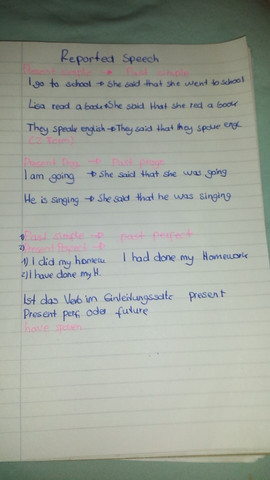 Reported Speech
Present simple → Past simple
I go to school → She said that she went to school
Lisa read a book → She said that she red a book
They speak english → They said that they spoke engl.
Present Prog. → Past prog.
I am going → She said that she was going
He is singing → She said that he was singing
1) Past simple → past perfect
2) Present Perfect →
1) I did my homew. I had done my Homework
2) I have done my H.
Ist das Verb im Einleitungssatz present
Present perf, oder future